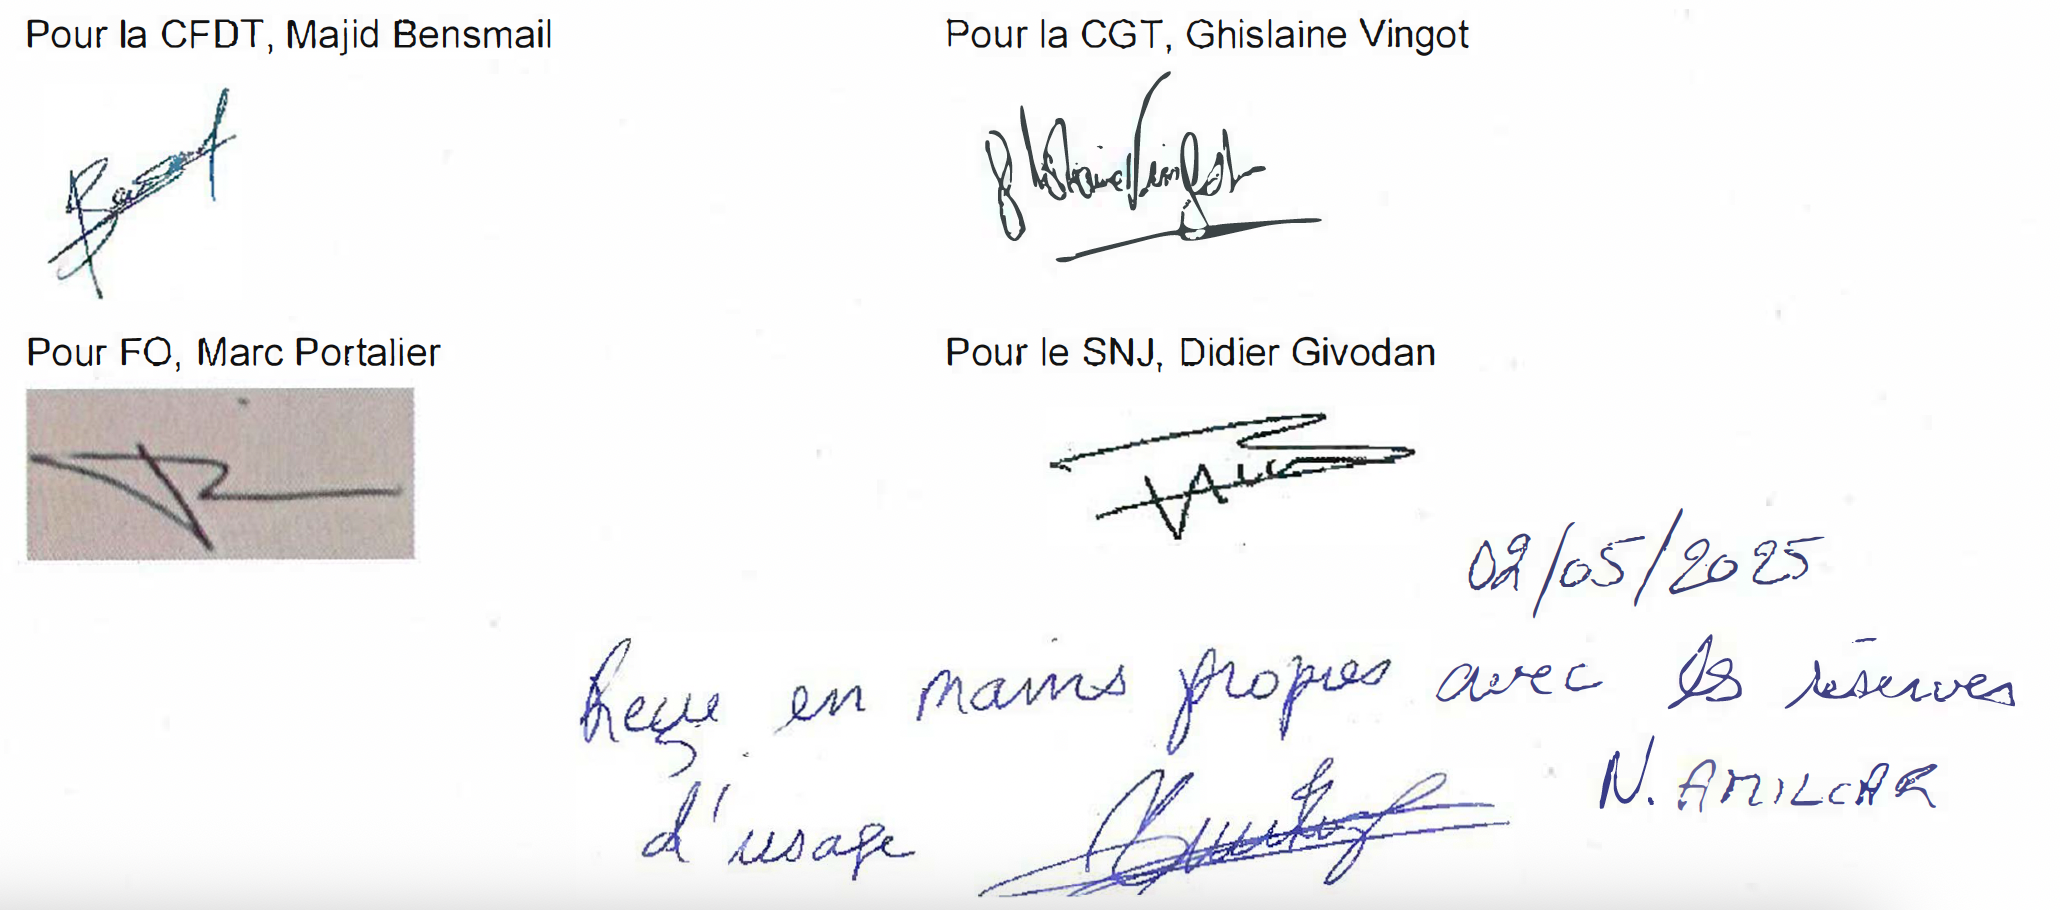 Pour la CFDT, Majid Bensmail
Pour la CGT, Ghislaine Vingot
Ghislaine Vingot
Pour FO, Marc Portalier
Pour le SNJ, Didier Givodan
02/05/2025
Reçue en mains propres avec les réserves
d'usage
N. AMILCAR